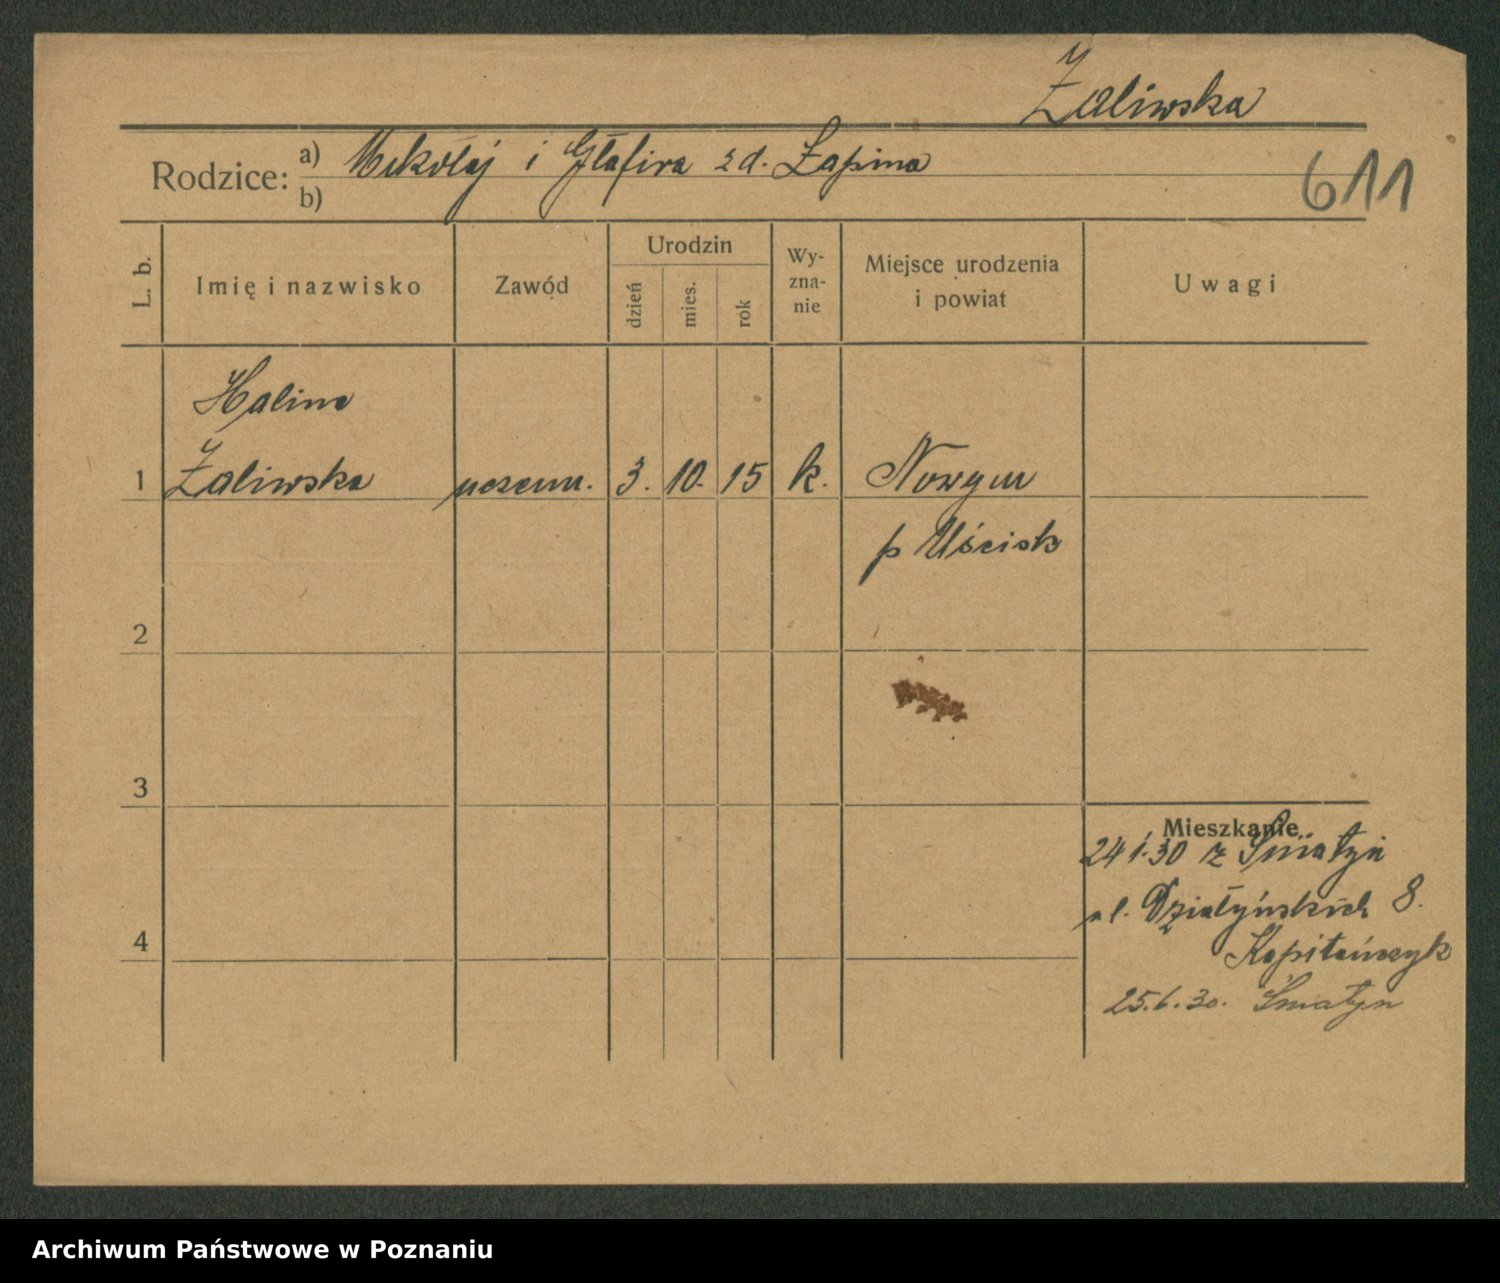 Żaliwska
Rodzice: a) Mikołaj i Głafira zd. Łapina
b)
611
L. b.
Imię i nazwisko
Zawód
Urodzin
dzień
mies.
rok
Wy-
zna-
nie
Miejsce urodzenia
i powiat
Uwagi
Halina
1 Żaliwska uczenn. 3. 10. 15 k.
p Uścisk
2
3
4
Mieszkanie
24 1.30 z Śniatyń
ul. Działyńskich 8.
Kapitańczyk
25.6.30. Śniatyn
Archiwum Państwowe w Poznaniu